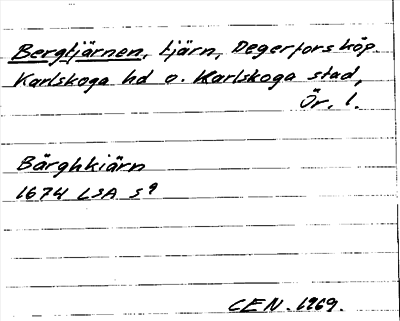 Bergtjärnen, tjärn, Degerfors köp.
Karlskoga hd o. Karlskoga stad,
Ör. l.
Bärghkiärn
1674 LSA S 9
CEN. 1969.